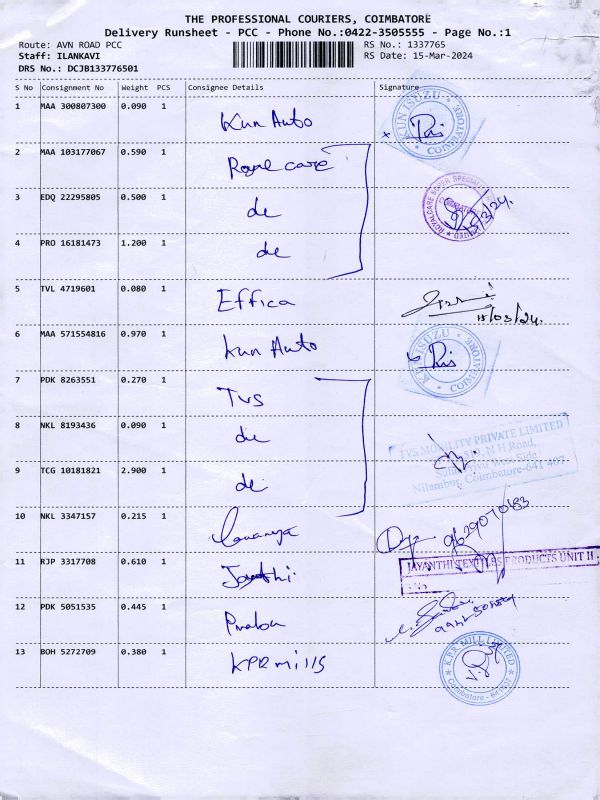 THE PROFESSIONAL COURIERS, COIMBATORE
Delivery Runsheet - PCC - Phone No.:0422-3505555 - Page No.:1
Route: AVN ROAD PCC
RS No.: 1337765
Staff: ILANKAVI
RS Date: 15-Mar-2024
DRS No.: DCJB133776501
S No Consignment No Weight PCS Consignee Details Signature
1 MAA 300807300 0.090 1 Kun Auto
KUN ISUZU COIMBATORE
2 MAA 103177067 0.590 1 Royal care
3 EDQ 22295805 0.500 1 do
4 PRO 16181473 1.200 1 do
5 TVL 4719601 0.080 1 Effica
15/03/24.
6 MAA 571554816 0.970 1 Kun Auto
KUN ISUZU COIMBATORE
7 PDK 8263551 0.270 1 TVS
8 NKL 8193436 0.090 1 do
TVS MOBILITY PRIVATE LIMITED
N H Road,
9 TCG 10181821 2.900 1 do
Nilambur, Coimbatore-641 407
10 NKL 3347157 0.215 1
11 RJP 3317708 0.610 1 Jayanthi
JAYANTHI TEXTILES PRODUCTS UNIT II
12 PDK 5051535 0.445 1
13 BOH 5272709 0.380 1 KPR mills
K.P.R. MILL LIMITED